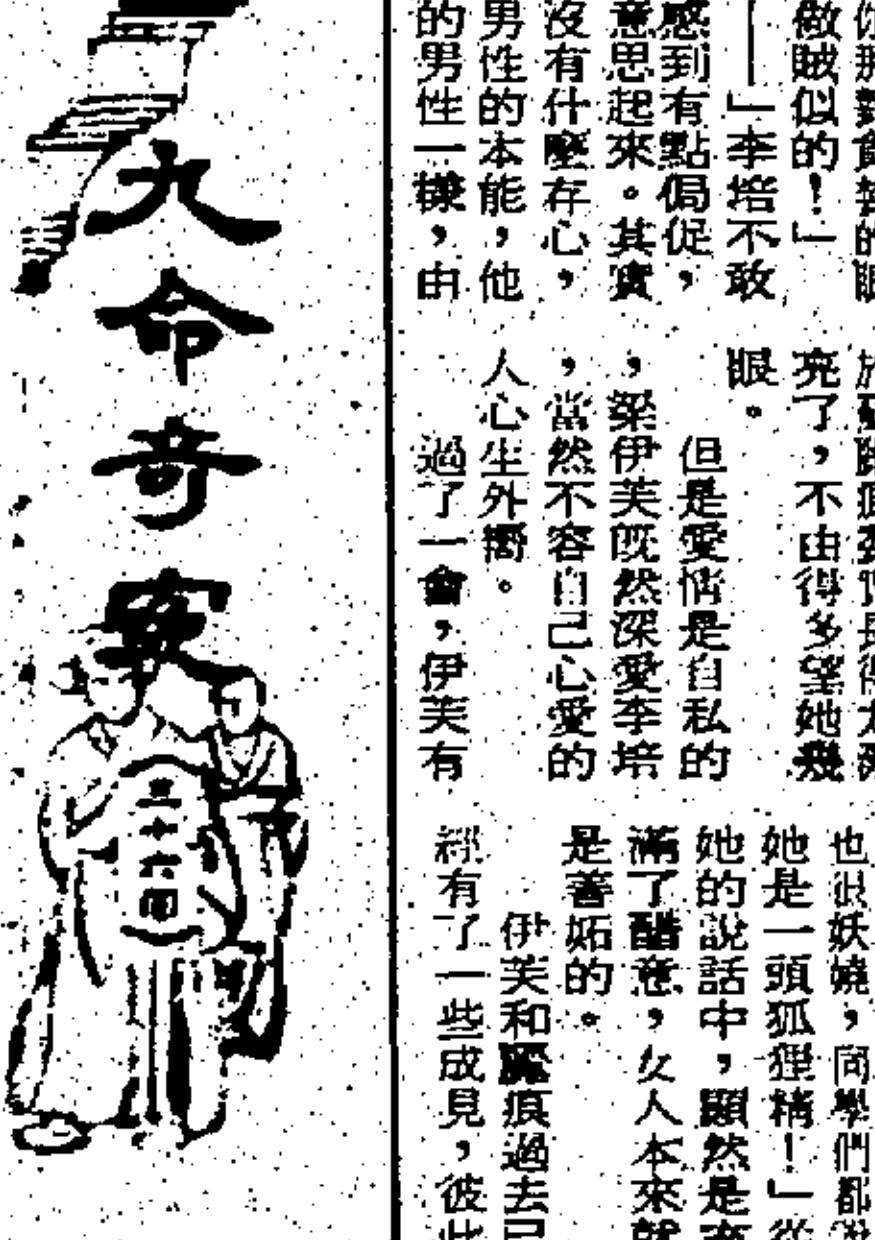 的眼
做賊似的!」
——」李培不敢
感到有點侷促,
意思起來。其實
沒有什麼存心,
男性的本能,他
的男性一樣,由
痕委實長得太漂
亮了,不由得多望她幾
眼。
但是愛情是自私的
,梁伊芙既然深愛李培
,當然不容自己心愛的
人心生外嚮。
過了一會,伊芙有
也很妖嬈,同學們都說
她是一頭狐狸精!」從
她的說話中,顯然是充
滿了醋意,女人本來就
是善妬的。
伊芙和臙痕過去已
經有了一些成見,彼此
九命奇案
三十六回